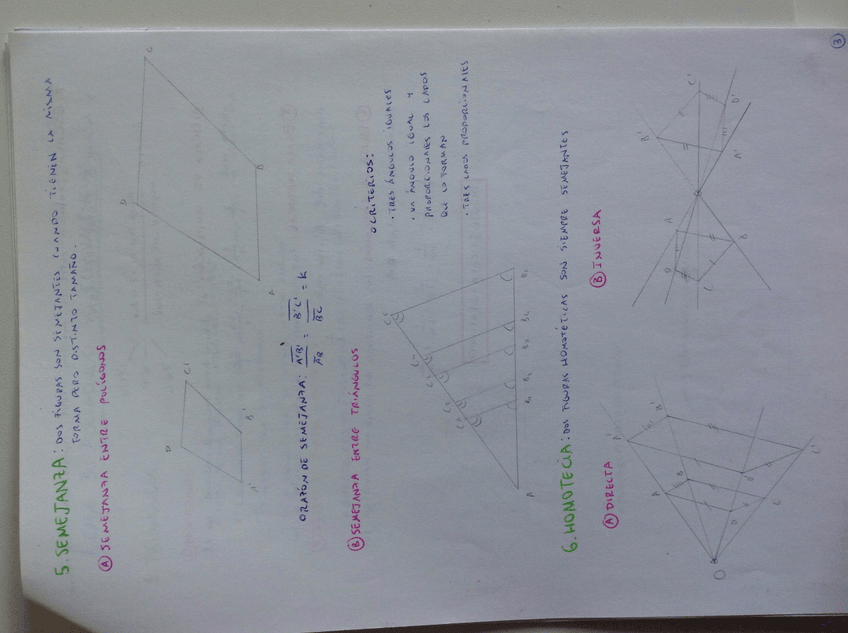 5. SEMEJANZA: DOS FIGURAS SON SEMEJANTES CUANDO TIENEN LA MISMA
FORMA PERO DISTINTO TAMAÑO.
A SEMEJANZA ENTRE POLÍGONOS
D C' A' B'
D C A B
O RAZÓN DE SEMEJANZA: A'B' / AB = B'C' / BC = K
B SEMEJANZA ENTRE TRIÁNGULOS
O CRITERIOS:
· TRES ÁNGULOS IGUALES
· UN ÁNGULO IGUAL Y
PROPORCIONALES LOS LADOS
QUE LO FORMAN
· TRES LADOS PROPORCIONALES
A
6. HOMOTECIA: DOS FIGURAS HOMOTÉTICAS SON SIEMPRE SEMEJANTES
A DIRECTA
O A B C D B' C'
B INVERSA
A B C D A' B' C' D'
3